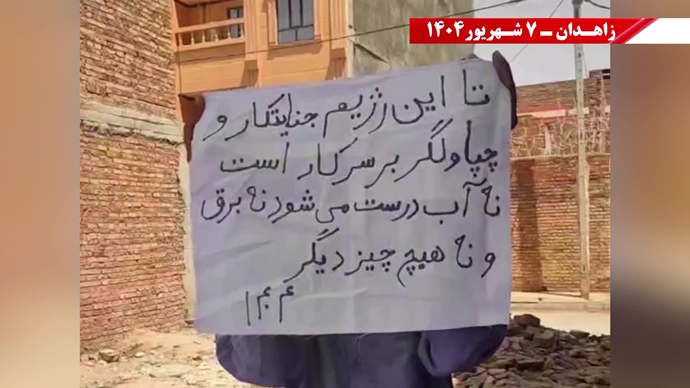 زاهدان ــ ۷ شهریور ۱۴۰۴
تا این رژیم جنایتکار و
چپاولگر بر سر کار است
نه آب درست می‌شود نه برق
و نه هیچ چیز دیگر